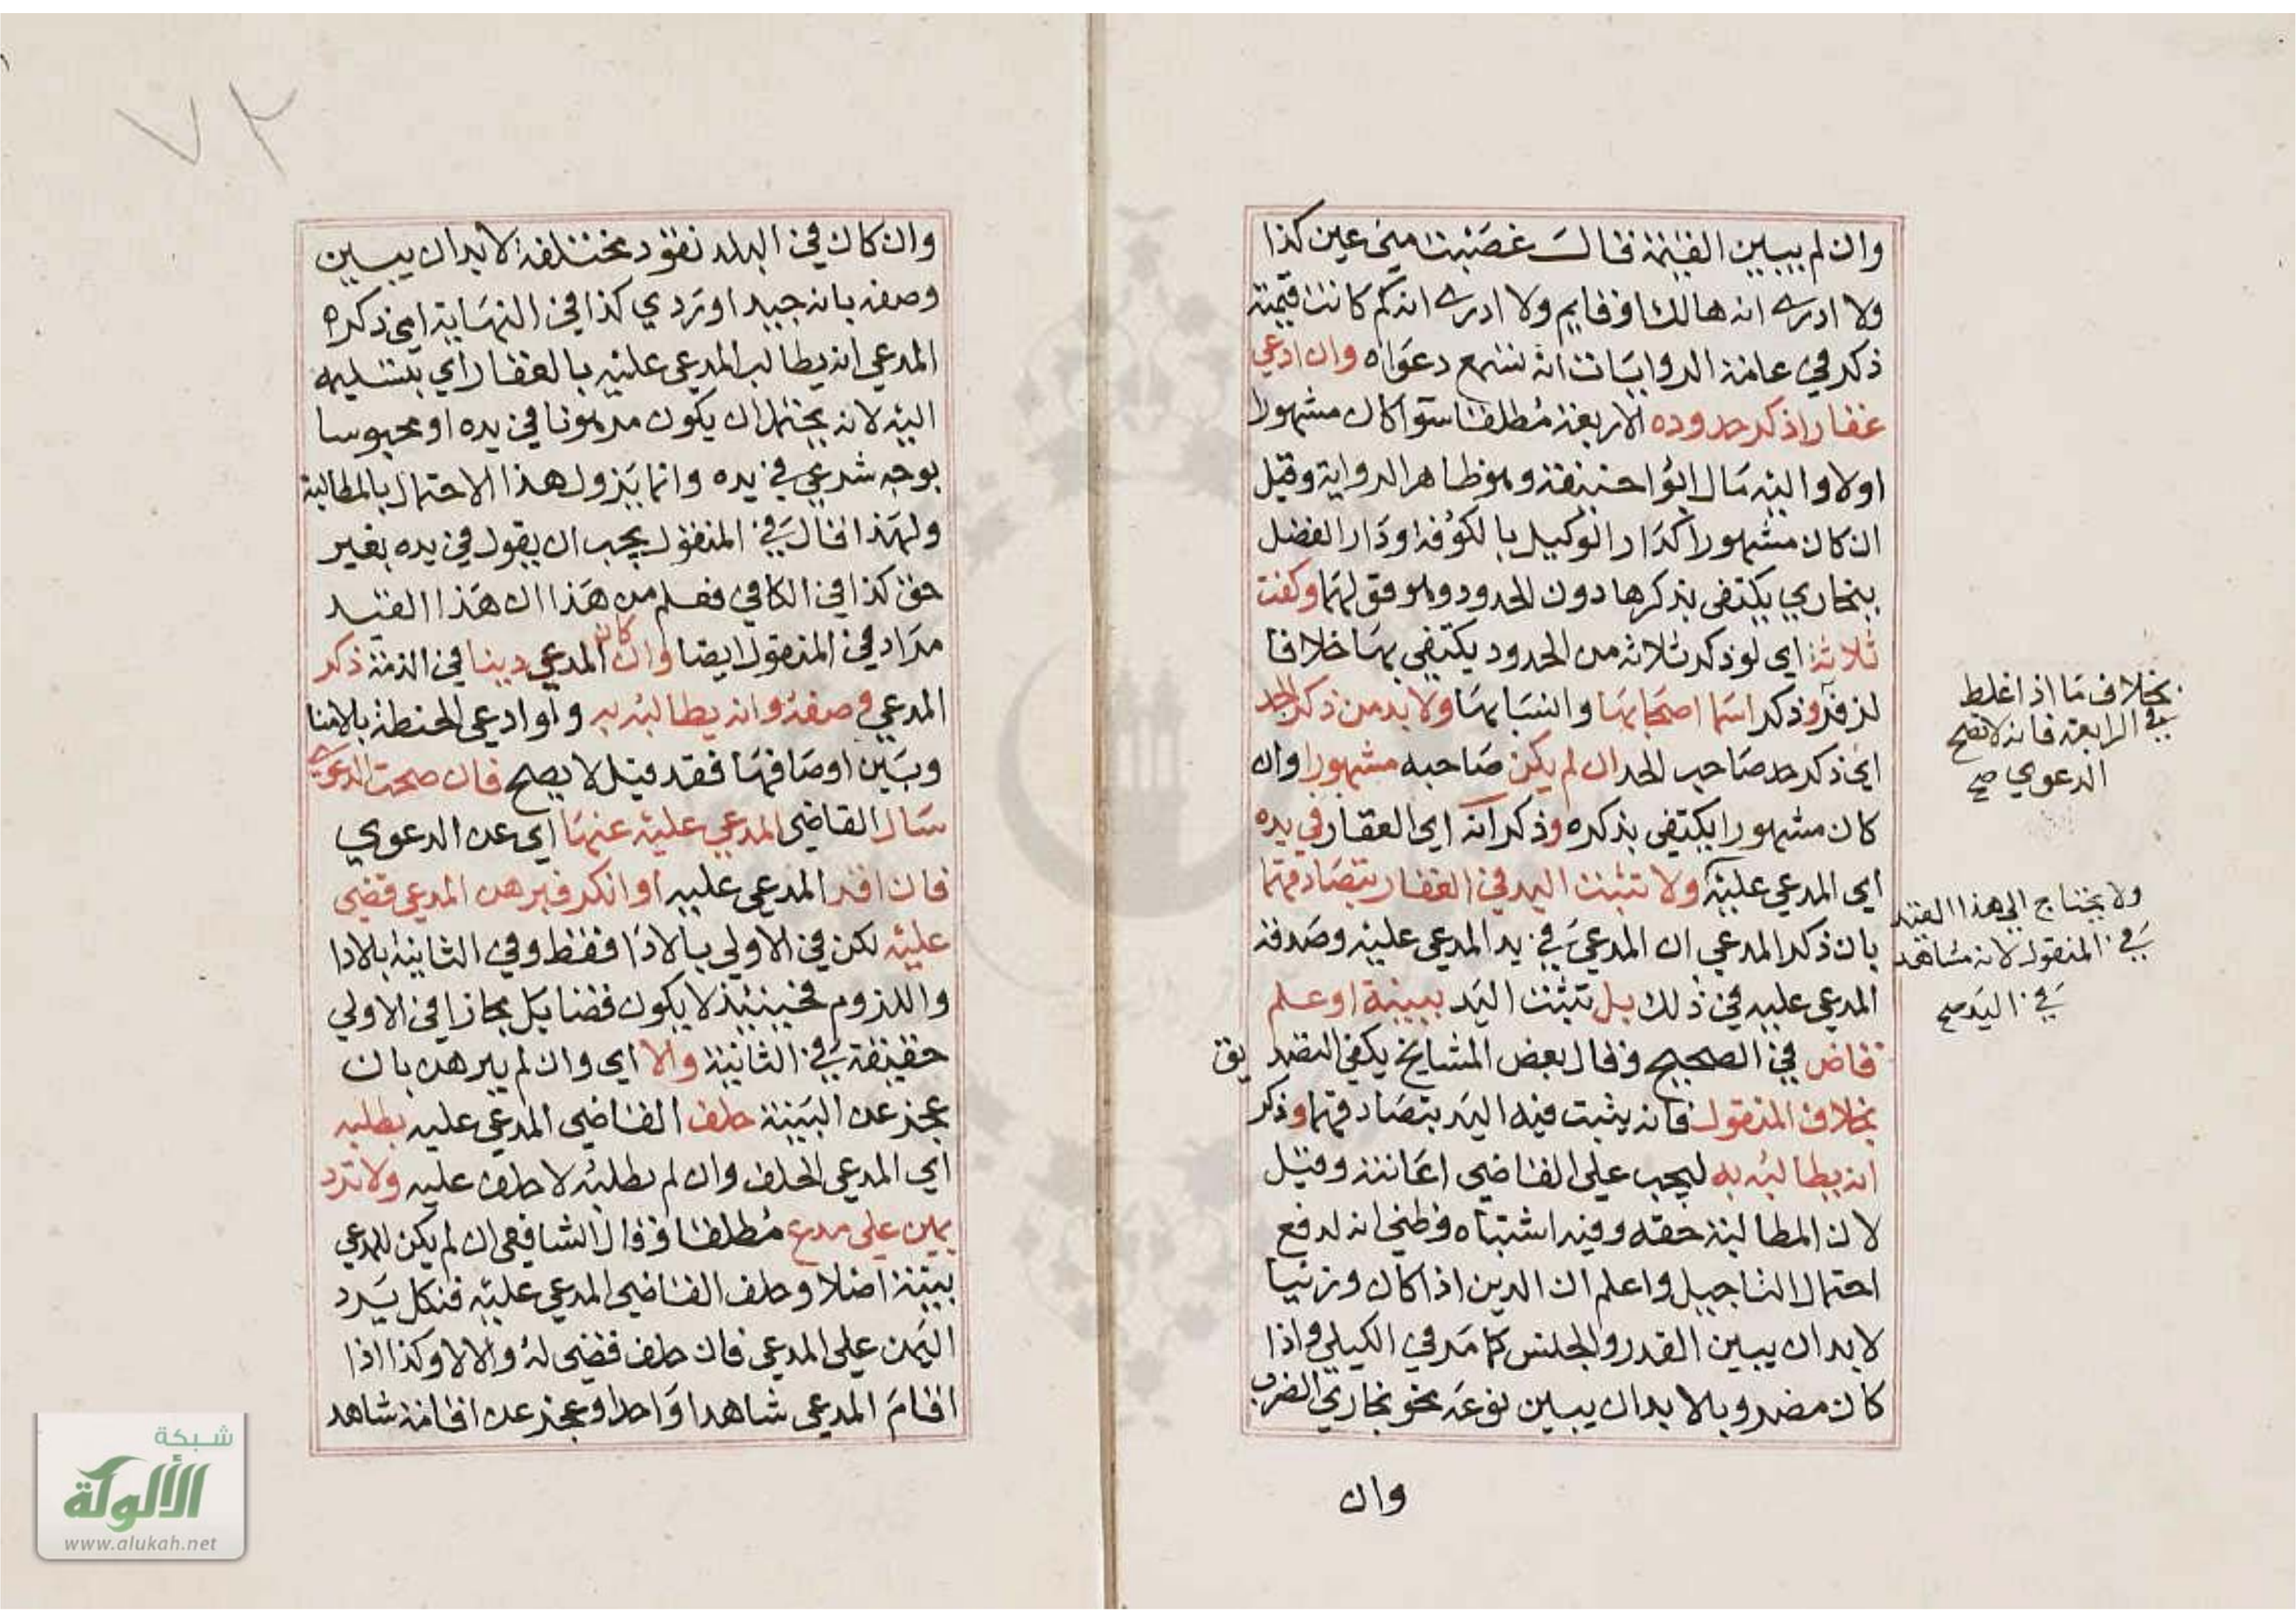 وان لم يبين القيمة فقال غصبت مني عين كذا
ولا ادري انه هالك او قايم ولا ادري انه كم كانت قيمته
ذكر في عامة الروايات انه تسمع دعواه وان ادعي
عقارا ذكر حدوده الاربعة مطلقا سوآ كان مشهورا
اولا واليه مال ابو احنيفة وهو ظاهر الرواية وقيل
ان كان مشهورا كدار الوكيل بالكوفة او دار الفضل
ببخاري يكتفى بذكرها دون الحدود وهو قولهما وكفت
ثلاثة اي لو ذكر ثلاثة من الحدود يكتفي بها خلافا
لزفر وذكر اسما اصحابها وانسابها ولا بد من ذكر الجد
اي ذكر جد صاحب الحد ان لم يكن صاحبه مشهورا وان
كان مشهورا يكتفى بذكره وذكر انه اي العقار في يده
اي المدعي عليه ولا تثبت اليد في العقار بتصادقهما
بان ذكر المدعي ان المدعي في يد المدعي عليه وصدقه
المدعي عليه في ذلك بل تثبت اليد ببينة او علم
قاض في الصحيح وقال بعض المشايخ يكفي التصديق
بخلاف المنقول فانه يثبت فيه اليد بتصادقهما وذكر
انه يطالبه به ليجب على القاضي اعانته وقيل
لان المطالبة حقه وفيه اشتباه وظني انه لدفع
احتمال التاجيل واعلم ان الدين اذا كان وزنيا
لا بد ان يبين القدر والجنس كما مر في الكيلي واذا
كان مضروبا لا بد ان يبين نوعه نحو بخاري الضرب
وان
بخلاف ما اذا غلط
في الرابعة فانه لا تصح
الدعوي صح
ولا يحتاج الي هذا القيد
في المنقول لانه مشاهد
في اليد صح
٧٢
وان كان في البلد نقود مختلفة لا بد ان يبين
وصفه بانه جيد او ردي كذا في النهاية اي ذكره
المدعي انه يطالب المدعي عليه بالعقار اي بتسليمه
اليه لانه يحتمل ان يكون مرهونا في يده او محبوسا
بوجه شرعي في يده وانما يزول هذا الاحتمال بالمطالبة
ولهذا قال في المنقول يجب ان يقول في يده بغير
حق كذا في الكافي فعلم من هذا ان هذا القيد
مراد في المنقول ايضا وان كان المدعي دينا في الذمة ذكر
المدعي وصفه وانه يطالبه به ولو ادعى الحنطة بالامنا
وبين اوصافها فقد قيل لا يصح فان صحت الدعوي
سال القاضي المدعي عليه عنها اي عن الدعوي
فان اقر المدعي عليه او انكر فبرهن المدعي قضي
عليه لكن في الاولي بالادا فقط وفي الثانية بالادا
واللزوم فحينئذ لا يكون قضا بل مجازا في الاولي
حقيقة في الثانية والا اي وان لم يبرهن بان
عجز عن البينة حلف القاضي المدعي عليه بطلبه
اي المدعي الحلف وان لم يطلبه لا حلف عليه ولا ترد
يمين على مدع مطلقا وقال الشافعي ان لم يكن للمدعي
بينة اصلا وحلف القاضي المدعي عليه فنكل يرد
اليمن على المدعي فان حلف قضى له والا لا وكذا اذا
اقام المدعي شاهدا واحدا وعجز عن اقامة شاهد
شبكة
الألوكة
www.alukah.net